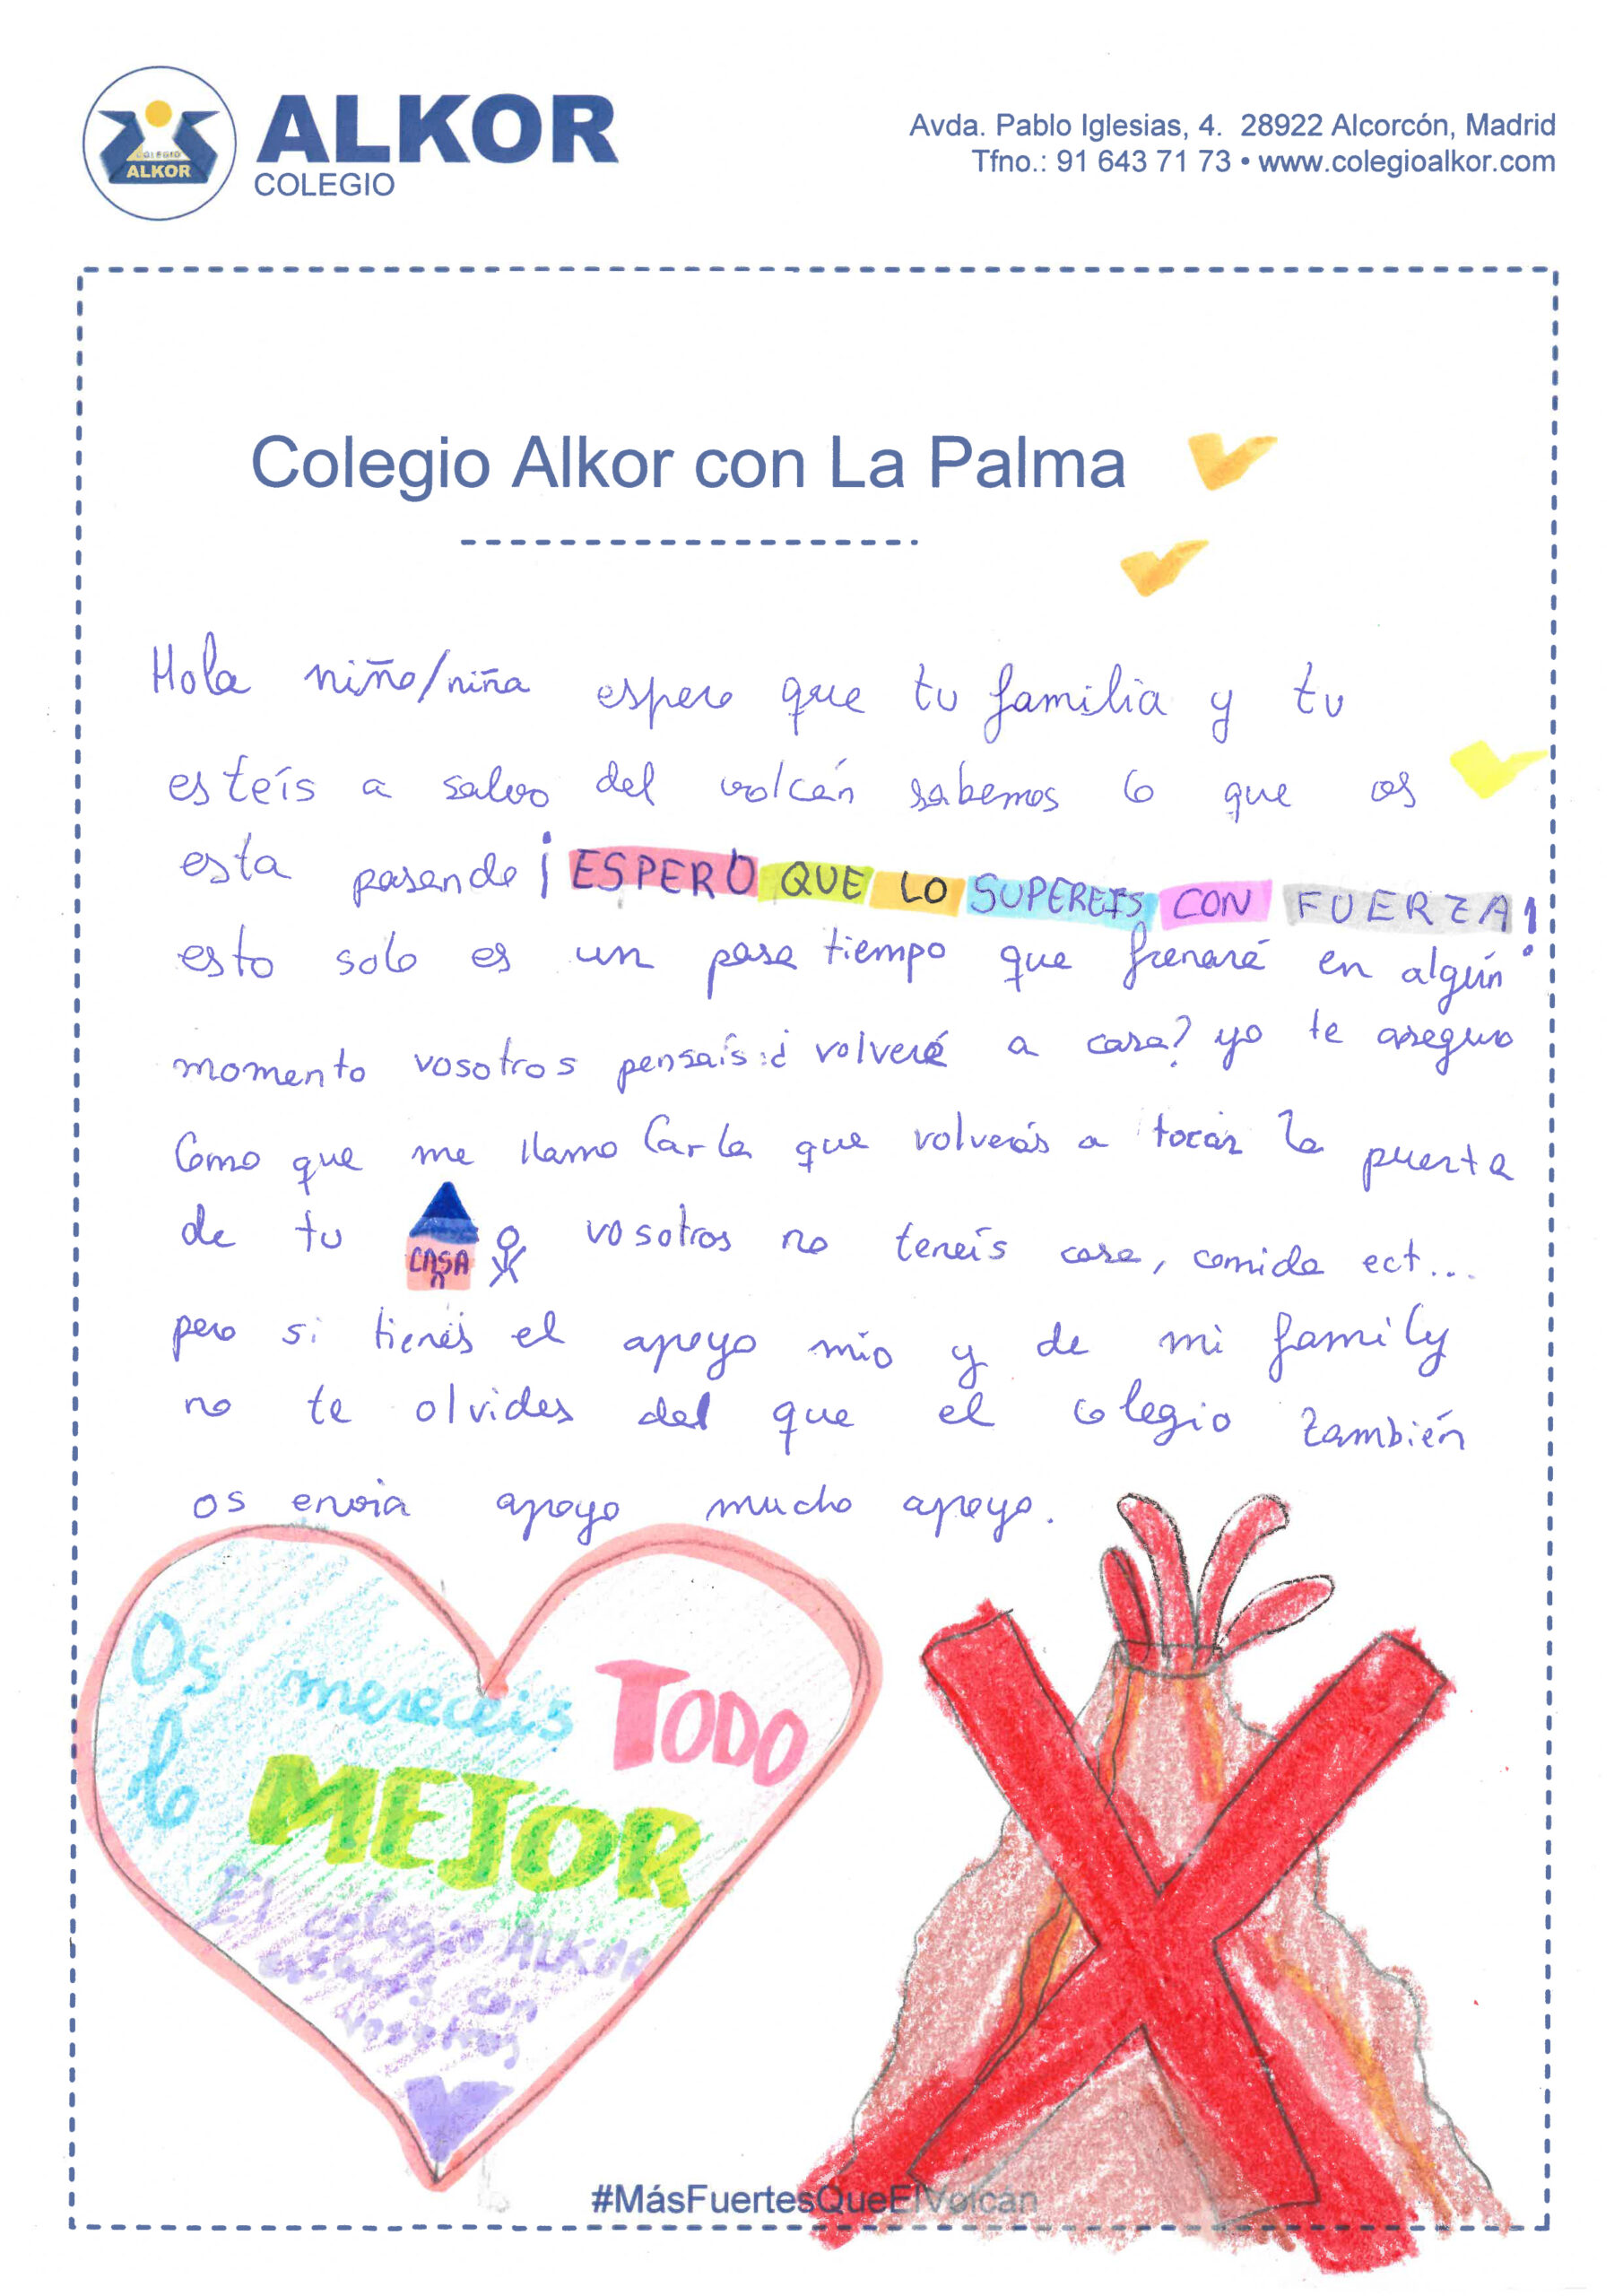 COLEGIO
ALKOR
ALKOR
COLEGIO
Avda. Pablo Iglesias, 4. 28922 Alcorcón, Madrid
Tfno.: 91 643 71 73 • www.colegioalkor.com
Colegio Alkor con La Palma
Hola niño/niña espero que tu familia y tu
esteís a salvo del volcán sabemos lo que os
esta pasando ¡ESPERO QUE LO SUPEREIS CON FUERZA!
esto solo es un pasa tiempo que frenará en algún
momento vosotros pensaís:¿volveré a casa? yo te aseguro
Como que me llamo Carla que volverás a tocar la puerta
de tu CASA vosotros no teneís casa, comida ect...
pero si tienes el apoyo mío y de mi family
no te olvides del que el colegio también
os envia apoyo mucho apoyo.
Os mereceis TODO
lo MEJOR
El colegio ALKOR
estamos con
vosotros
#MásFuertesQueElVolcán